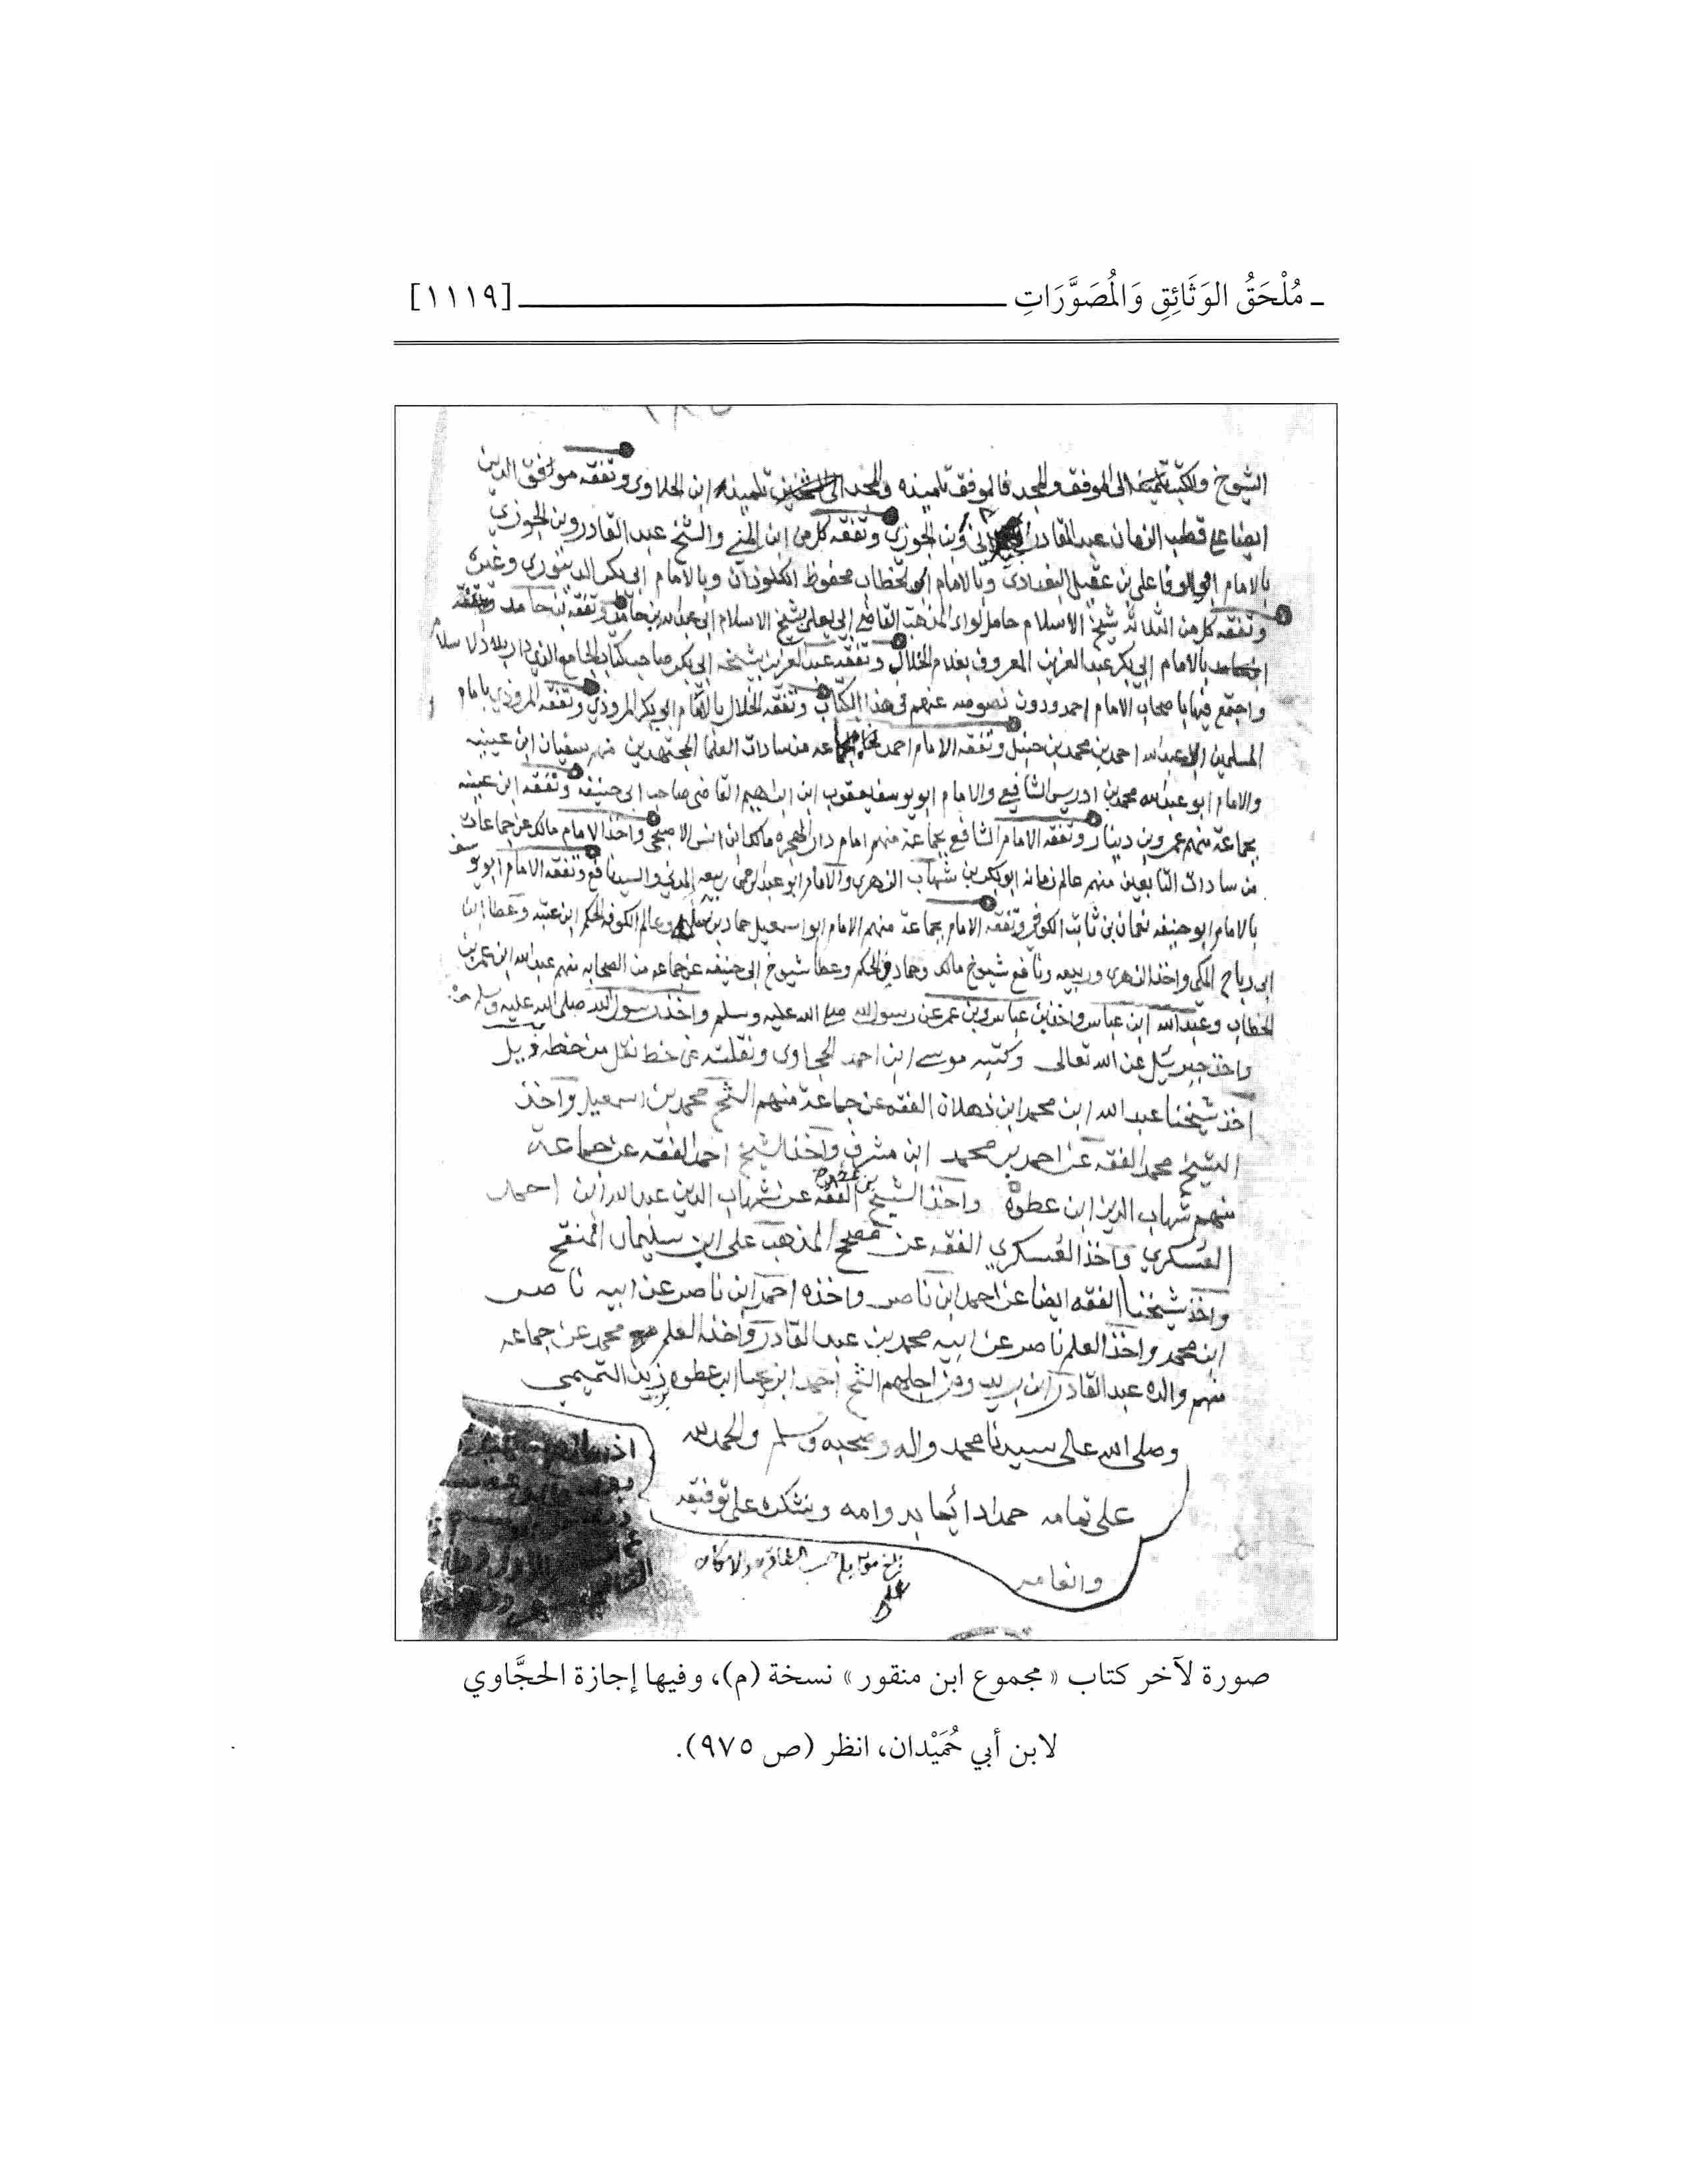 ـ مُلْحَقُ الوَثَائِقِ وَالمُصَوَّرَاتِ ــــــــ [١١١٩]
الشيوخ الى الموفق والمجد فالموفق تلميذه والمجد تلميذه ابن الحلاوى وتفقه موفق الدين
ايضا على قطب الزمان عبد القادر وبن الجوزي وتفقه كل من ابن المني والشيخ عبد القادر وبن الجوزي
بالامام ابي الوفا على بن عقيل البغدادي وبالامام ابي الخطاب محفوظ الكلوذان وبالامام ابي بكر الدينوري وغيره
وتفقه كل من الثلاثه شيخ الاسلام حامل لواء المذهب القاضي ابي يعلى بشيخ الاسلام ابي عبد الله بن حامد وتفقه بن حامد
بالامام ابي بكر عبد العزيز المعروف بغلام الخلال وتفقه عبد العزيز بشيخه ابي بكر صاحب كتاب الجامع الذي دار بلاد الاسلام
واجتمع فيها باصحاب الامام احمد ودون نصوصه عنهم في هذا الكتاب وتفقه الخلال بالامام ابو بكر المروذي وتفقه المروذي بامام
المسلمين ابي عبد الله احمد بن محمد بن حنبل وتفقه الامام احمد بجماعه من سادات العلما المجتهدين منهم سفيان ابن عيينه
والامام ابو عبد الله محمد بن ادريس الشافعي والامام ابو يوسف يعقوب ابن ابراهيم القاضي صاحب ابي حنيفه وتفقه ابن عيينه
بجماعة منهم عمرو بن دينار وتفقه الامام الشافعي بجماعة منهم امام دار الهجره مالك ابن انس الاصبحي واخذ الامام مالك عن جماعات
من سادات التابعين منهم عالم زمانه ابو بكر بن شهاب الزهري والامام ابو عبد الرحمن ربيعه المدني والسيد نافع وتفقه الامام ابو يوسف
بالامام ابو حنيفه نعمان بن ثابت الكوفي وتفقه الامام بجماعة منهم الامام ابو اسمعيل حماد بن وعالم الكوفه الحكم ابن عتبه وعطا ابن
ابي رباح المكي واخذ الزهري وربيعه ونافع شيوخ مالك وحماد والحكم وعطا شيوخ ابي حنيفه عن جماعه من الصحابه منهم عبد الله ابن عمر بن
الخطاب وعبد الله ابن عباس واخذ بن عباس وبن عمر عن رسول الله صلى الله عليه وسلم واخذ رسول الله صلى الله عليه وسلم
واخذ جبريل عن الله تعالى وكتبه موسى ابن احمد الحجاوى ونقلت عن خط نقل من خطه
اخذ شيخنا عبد الله ابن محمد ابن ذهلان الفقه عن جماعة منهم الشيخ محمد بن اسمعيل واخذ
الشيخ محمد الفقه عن احمد بن محمد ابن مشرف واخذ الشيخ احمد الفقه عن جماعة
منهم شهاب الدين ابن عطوه واخذ الشيخ بن عطوه الفقه عن شهاب الدين عبد الله ابن احمد
العسكري واخذ العسكري الفقه عن مصحح المذهب على ابن سليمان المنقح
واخذ شيخنا الفقه ايضا عن احمد ابن ناصر واخذه احمد ابن ناصر عن ابيه ناصر
ابن محمد واخذ العلم ناصر عن ابيه محمد بن عبد القادر واخذ العلم محمد عن جماعه
منهم والده عبد القادر ابن ومن اجلهم الشيخ احمد ابن يحيا ابن عطوه بن زيد التميمي
وصلى الله على سيدنا محمد واله وصحبه وسلم والحمد لله
على تمامه حمدا دائما بدوامه ونشكره على توفيقه
وانعامه
صورة لآخر كتاب « مجموع ابن منقور » نسخة (م)، وفيها إجازة الحجَّاوي
لابن أبي حُمَيْدان، انظر (ص ٩٧٥).